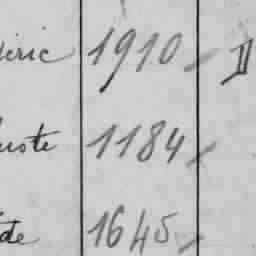 éric 1910 D
uste 1184
de 1645